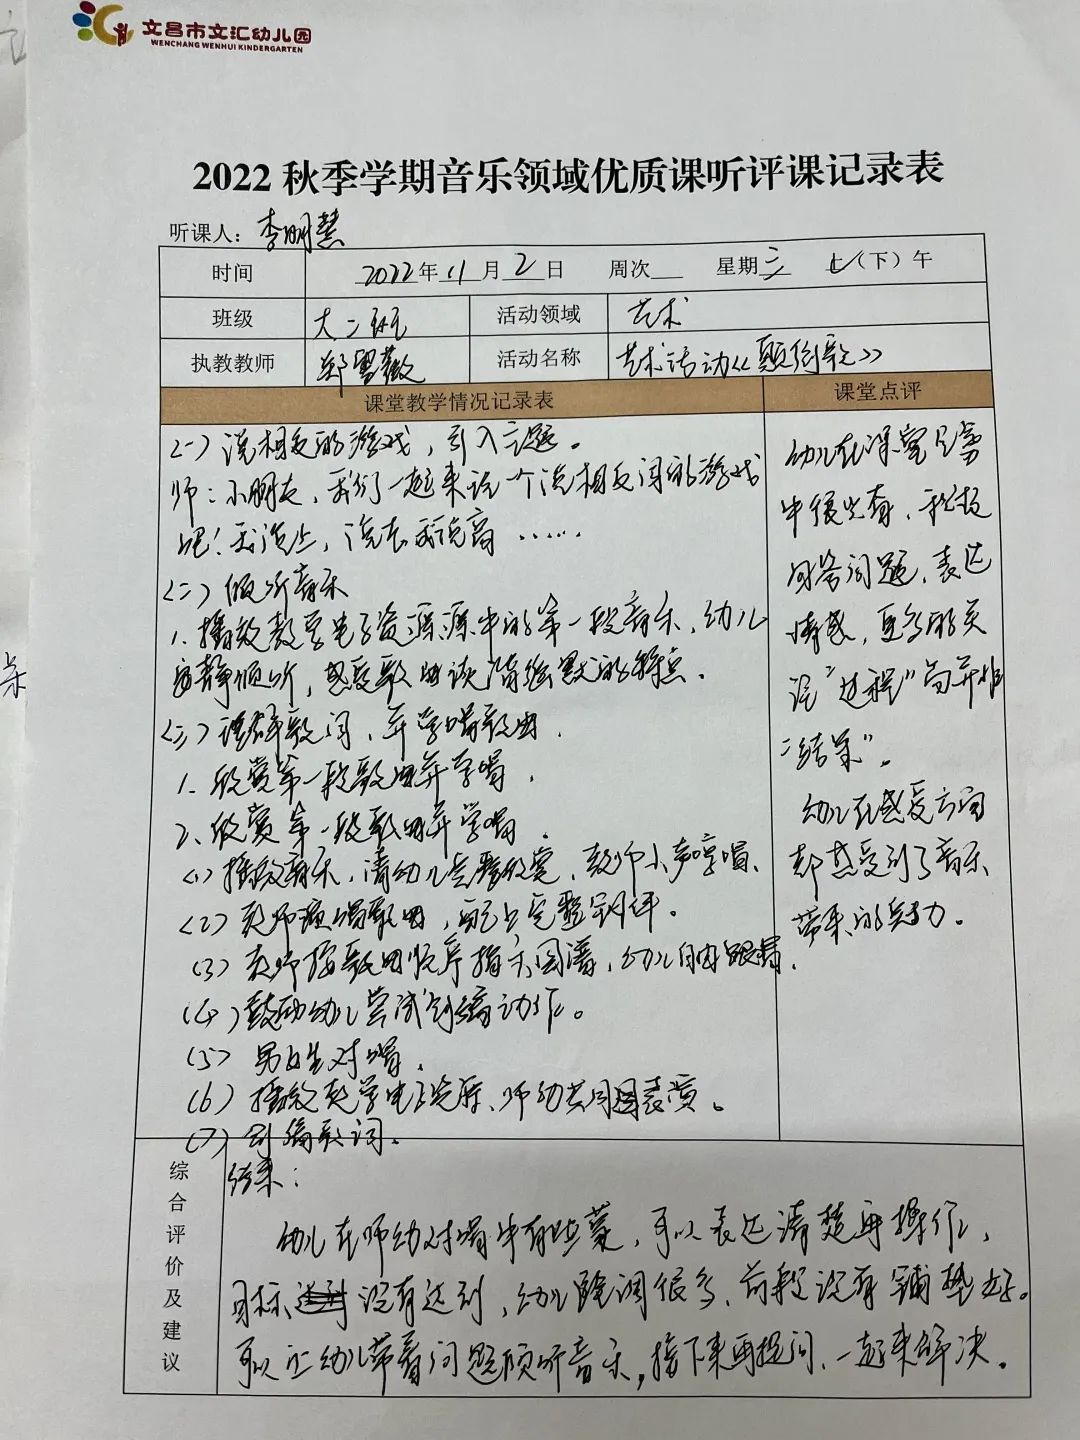 文昌市文汇幼儿园
WENCHANG WENHUI KINDERGARTEN
2022 秋季学期音乐领域优质课听评课记录表
听课人：李明慧
时间 2022年11月2日 周次 星期三 上（下）午
班级 大二班 活动领域 艺术
执教教师 郑雪薇 活动名称 艺术活动《颠倒歌》
课堂教学情况记录表 课堂点评
(一) 说相反的游戏，引入主题。
师：小朋友，我们一起来玩一个说相反词的游戏
吧！我说上，说去我说高……
(二) 倾听音乐
1、播放教学电子资源库中的第一段音乐，幼儿
安静倾听，感受歌曲诙谐幽默的特点.
(三) 理解歌词，并学唱歌曲.
1、欣赏第一段歌曲并学唱.
2、欣赏第一段歌曲并学唱.
(1) 播放音乐，请幼儿完整欣赏，教师小声哼唱、
(2) 教师演唱歌曲，配上完整动作。
(3) 教师按歌曲顺序指示图谱，幼儿自由跟唱.
(4) 鼓励幼儿尝试创编动作。
(5) 男女生对唱.
(6) 播放教学电子资源、师幼共同表演。
(7) 创编歌词。
幼儿在课堂
中很，积极
回答问题，表达
情感，更多的关
注"过程"而并非
"结果"。
幼儿在感受方面
都感受到了音乐
带来的魅力.
综合评价及建议
结束：
幼儿在师幼对唱中有些蒙，可以表达清楚再操作，
目标没有达到，幼儿跑调很多，前段没有铺垫好。
可以让幼儿带着问题倾听音乐，接下来再提问、一起来解决。